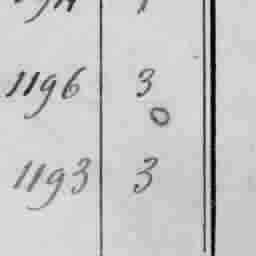 1196 3
0
1193 3